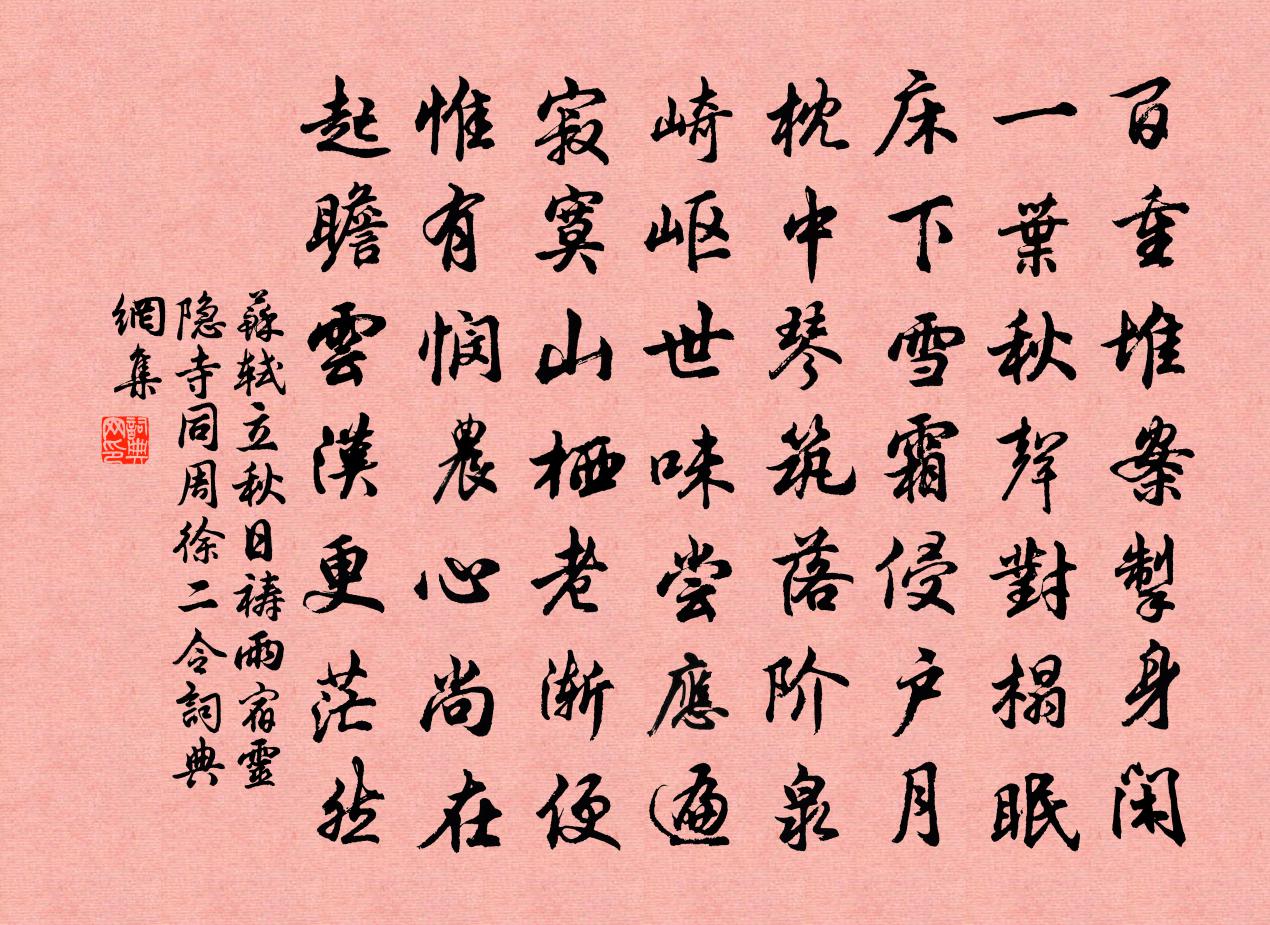 百重堆案掣身閑
一葉秋聲對榻眠
床下雪霜侵户月
枕中琴筑落阶泉
崎岖世味尝應遍
寂寞山栖老漸便
惟有悯農心尚在
起瞻雲漢更茫然
蘇轼立秋日禱雨宿靈
隐寺同周徐二令詞典
網集
詞典
网印